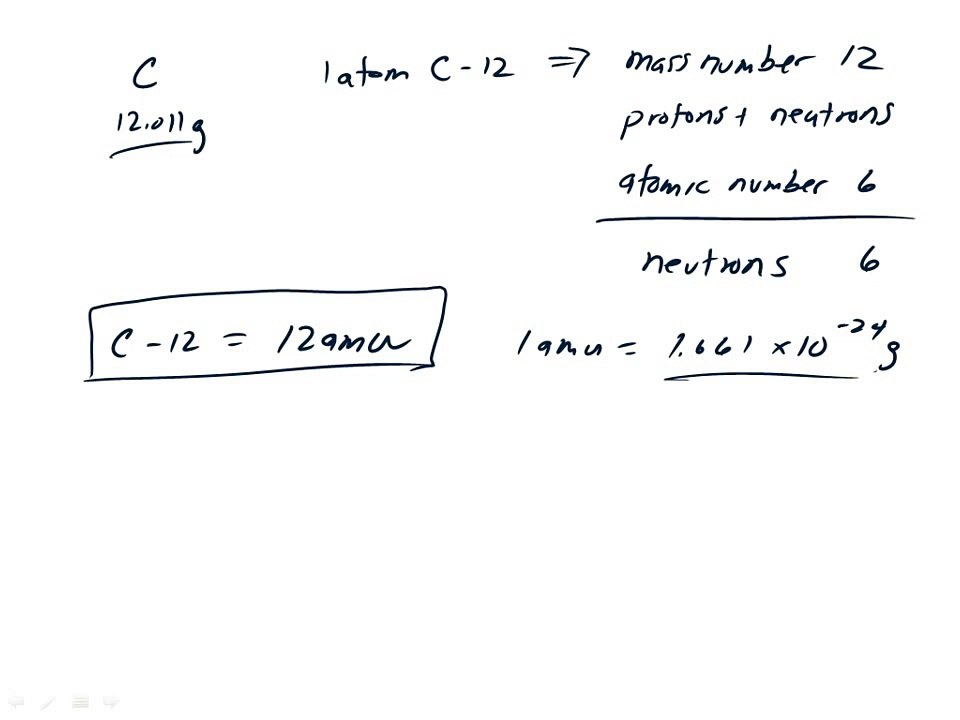 C 1 atom C-12 ⇒ mass number 12
12.011g protons + neutrons
atomic number 6
neutrons 6
C-12 = 12amu 1amu = 1.661 × 10⁻²⁴g